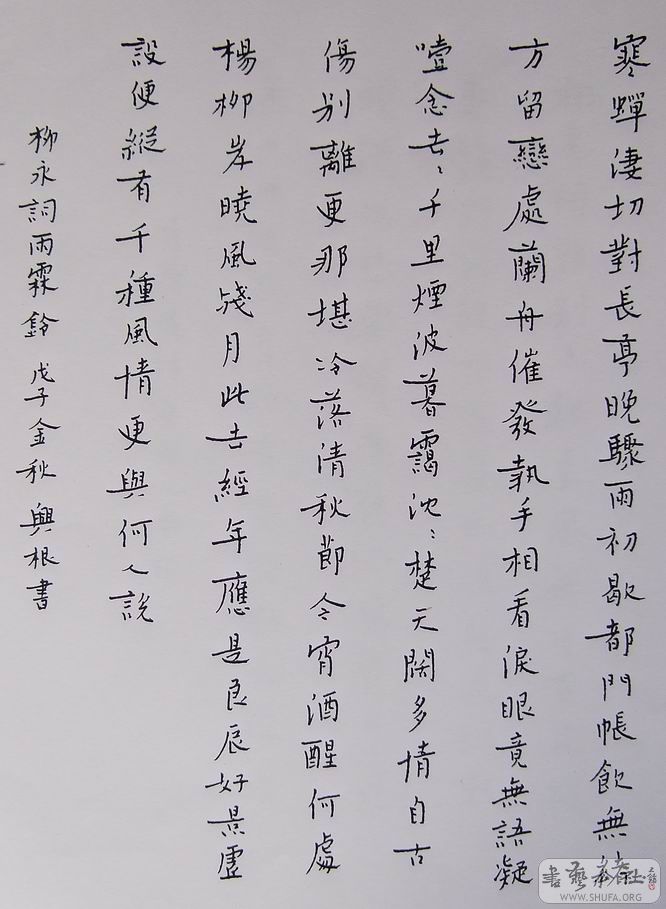 寒蟬淒切對長亭晚驟雨初歇都門帳飲無緒
方留戀處蘭舟催發執手相看淚眼竟無語凝
噎念去〻千里煙波暮靄沈〻楚天闊多情自古
傷别離更那堪冷落清秋節今宵酒醒何處
楊柳岸曉風殘月此去經年應是良辰好景虛
設便縱有千種風情更與何人說
柳永詞雨霖鈴 戊子金秋 興根書
WWW.SHUFA.ORG